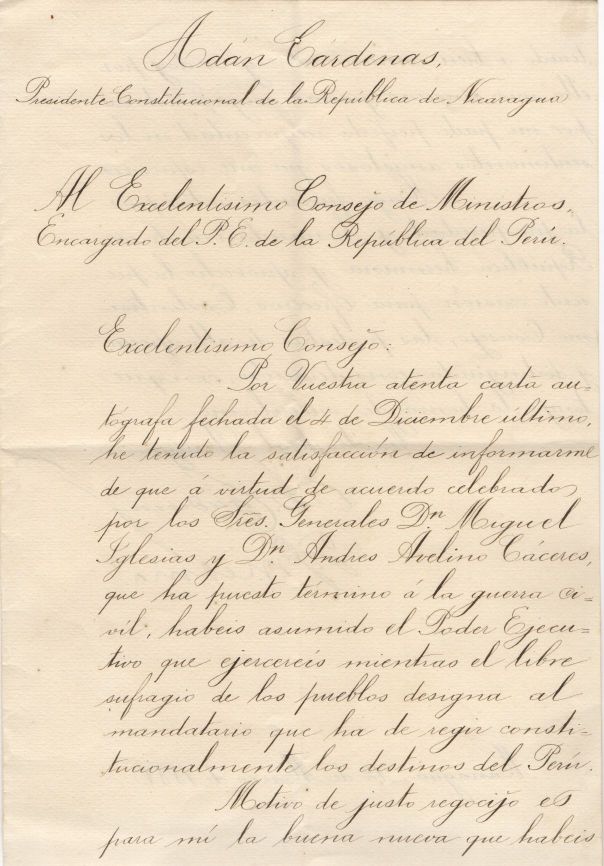 Adán Cárdenas,
Presidente Constitucional de la República de Nicaragua
Al Excelentísimo Consejo de Ministros,
Encargado del P. E. de la República del Perú.
Excelentísimo Consejo:
Por Vuestra atenta carta au-
tógrafa fechada el 4 de Diciembre último,
he tenido la satisfacción de informarme
de que á virtud de acuerdo celebrado
por los Sres. Generales Dn. Miguel
Iglesias y Dn. Andres Avelino Cáceres,
que ha puesto término á la guerra ci-
vil, habeis asumido el Poder Ejecu-
tivo que ejercereis mientras el libre
sufragio de los pueblos designa al
mandatario que ha de regir consti-
tucionalmente los destinos del Perú.
Motivo de justo regocijo es
para mí la buena nueva que habeis